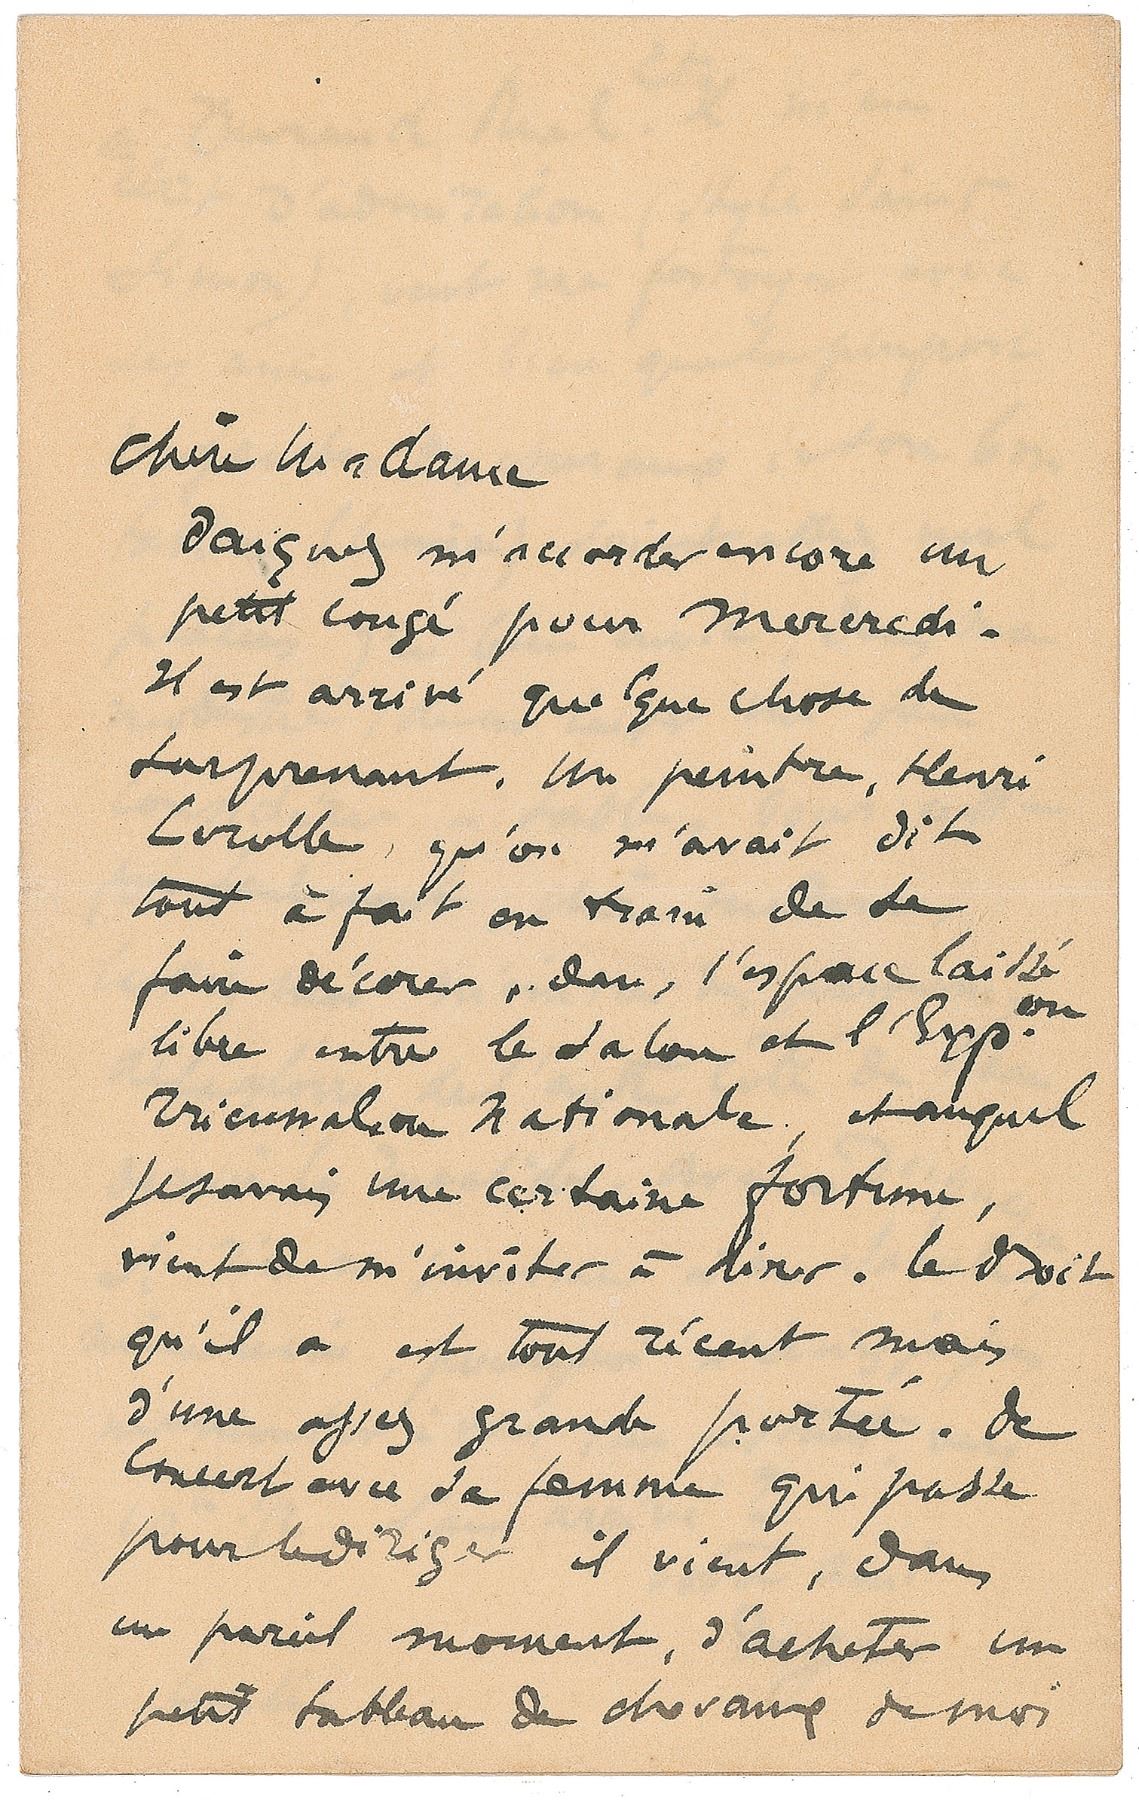 Chère Madame
Daignez m'accorder encore un
petit congé pour Mercredi.
Il est arrivé quelque chose de
surprenant. Un peintre, Henri
Lerolle, qu'on m'avait dit
tout à fait en train de se
faire décorer, dans l'espace laissé
libre entre le Salon et l'Exp.on
Triennale ou Nationale, et auquel
je savais une certaine fortune,
vient de m'inviter à diner. Le droit
qu'il a est tout récent mais
d'une assez grande portée. De
concert avec sa femme qui passe
pour le diriger il vient, dans
un pareil moment, d'acheter un
petit tableau de chevaux de moi